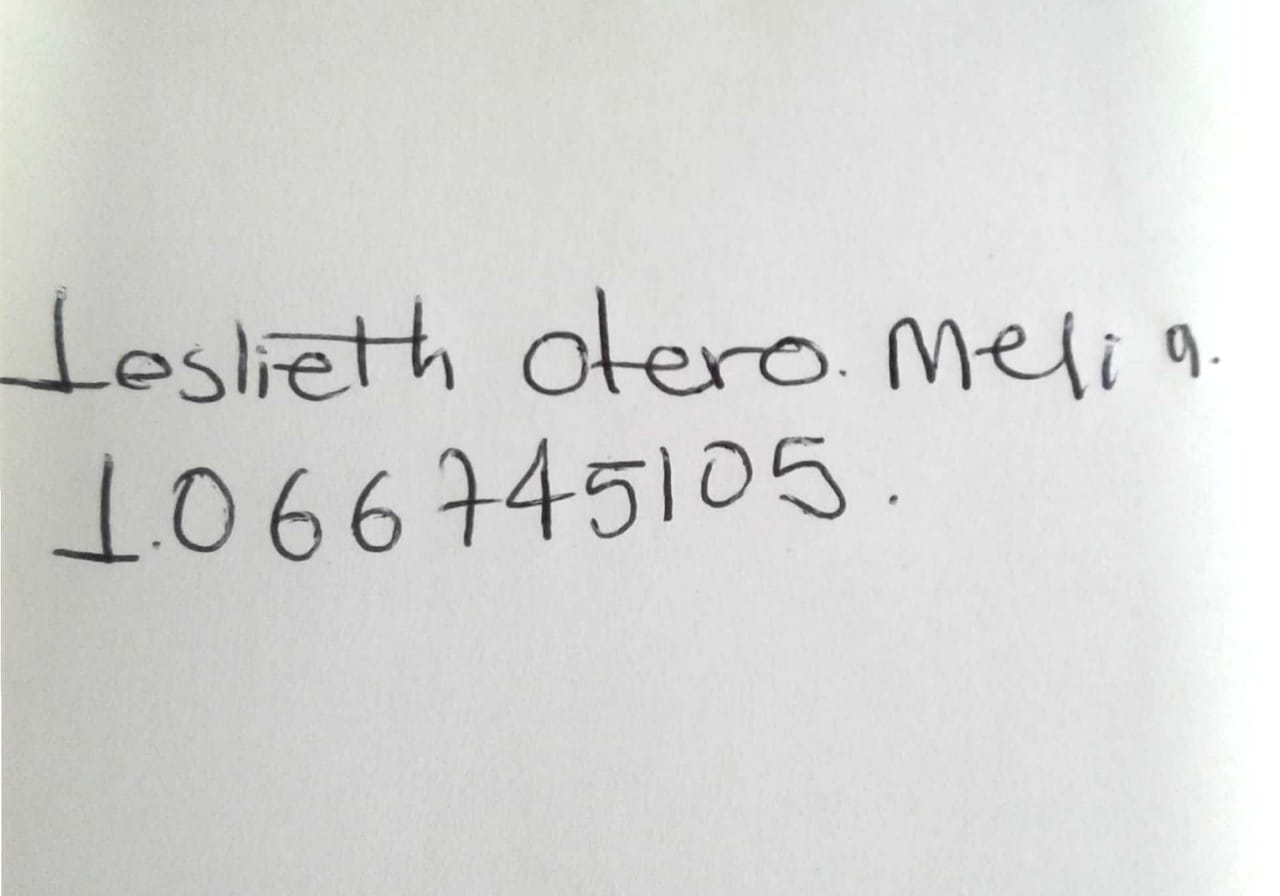 Leslieth otero. Melia.
1.066745105.